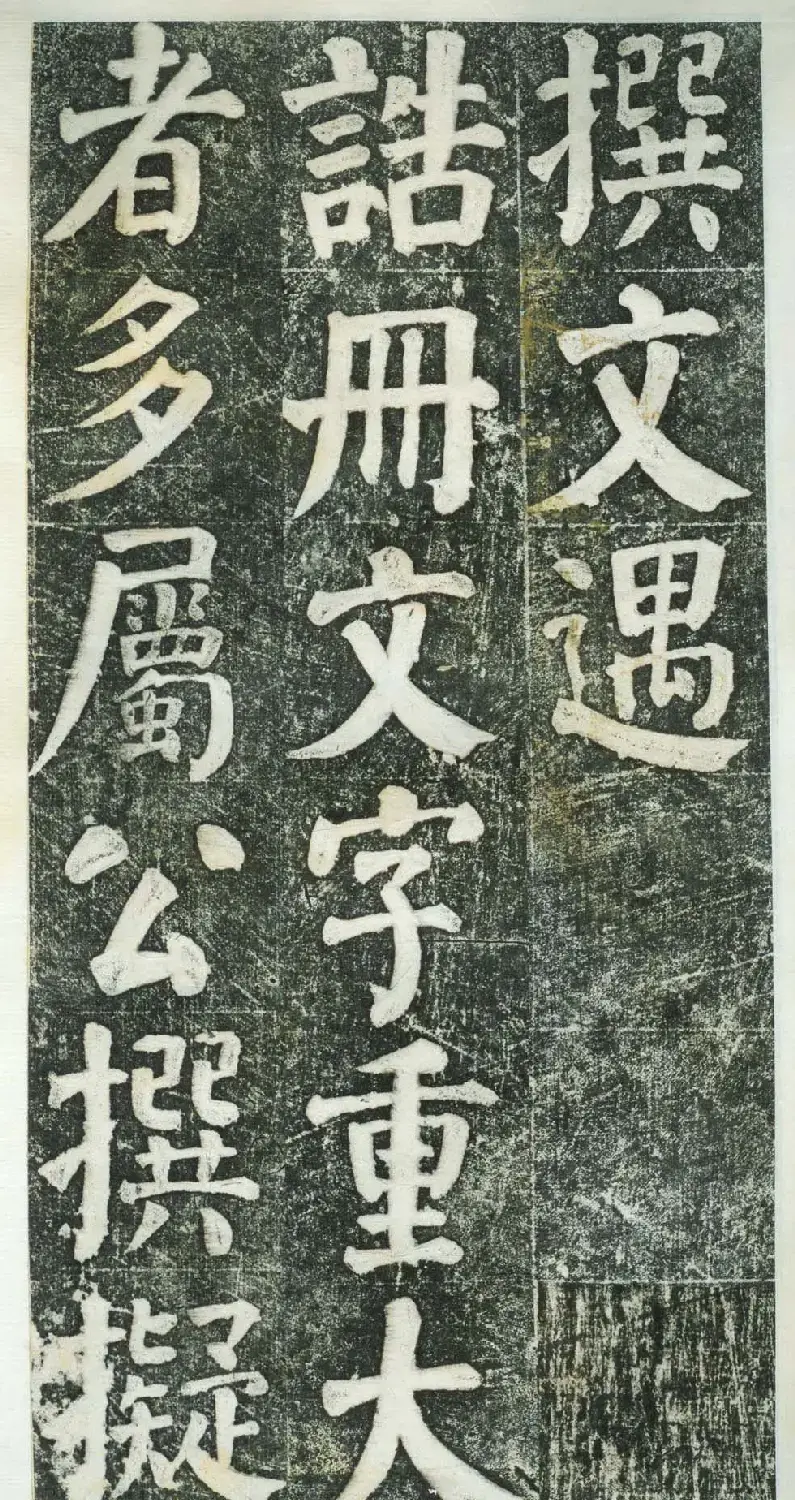 撰文遇
誥冊文字重大
者多屬公撰擬